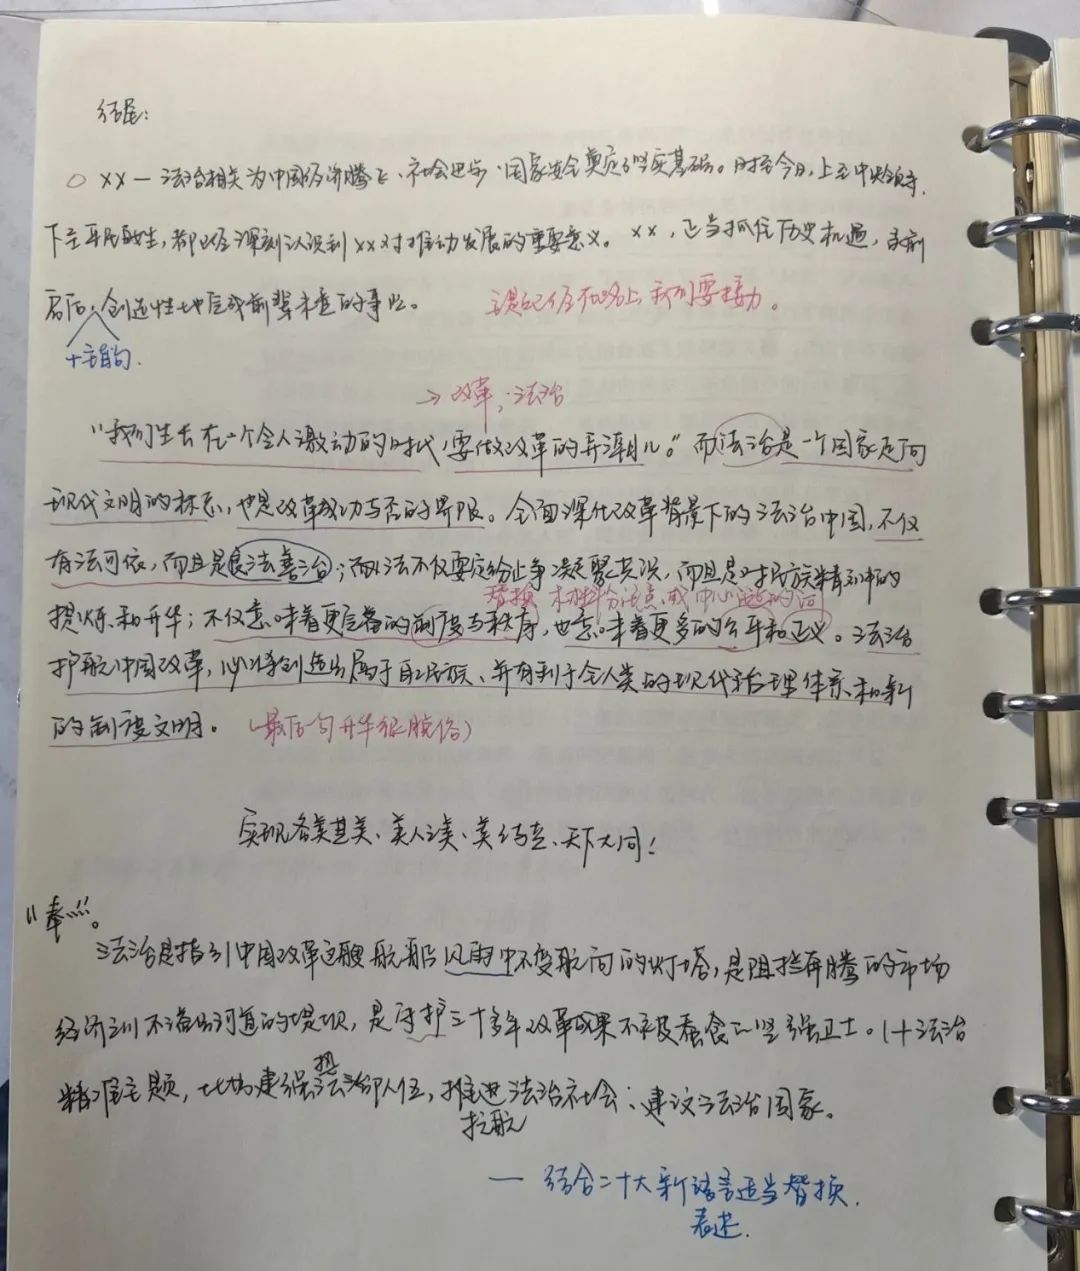 结尾:
○ XX—法治相关为中国经济腾飞、社会进步、国家安全奠定了坚实基础。时至今日,上至中央领导,
下至平民百姓,都已经深刻认识到XX对推动发展的重要意义。XX,正当抓住历史机遇,承前
启后,创造性地完成前辈未竟的事业。
我们要接力。
+主旨句.
→改革,法治
“我们生长在一个令人激动的时代,要做改革的弄潮儿。”而法治是一个国家走向
现代文明的标志,也是改革成功与否的界限。全面深化改革背景下的法治中国,不仅
有法可依,而且是良法善治;而以法不仅要定纷止争凝聚共识,而且是对民族精神的
替换 材料分论点或中心主题的词
提炼和升华;不仅意味着更完备的制度与秩序,也意味着更多的公平和正义。法治
护航中国改革,必将创造出属于自民族、并有利于全人类的现代治理体系和新
的制度文明。
(最后句升华很脱俗)
实现各美其美、美人之美、美美与共、天下大同!
“奉……。
法治是指引中国改革这艘航船风雨中不变航向的灯塔,是阻拦奔腾的市场
经济洪流不溢出河道的堤坝,是守护三十多年改革成果不被蚕食的坚强卫士。(+法治
精准主题,比如建强法治队伍,推进法治社会、建设法治国家。
护航
— 结合二十大新语言适当替换.
表述.